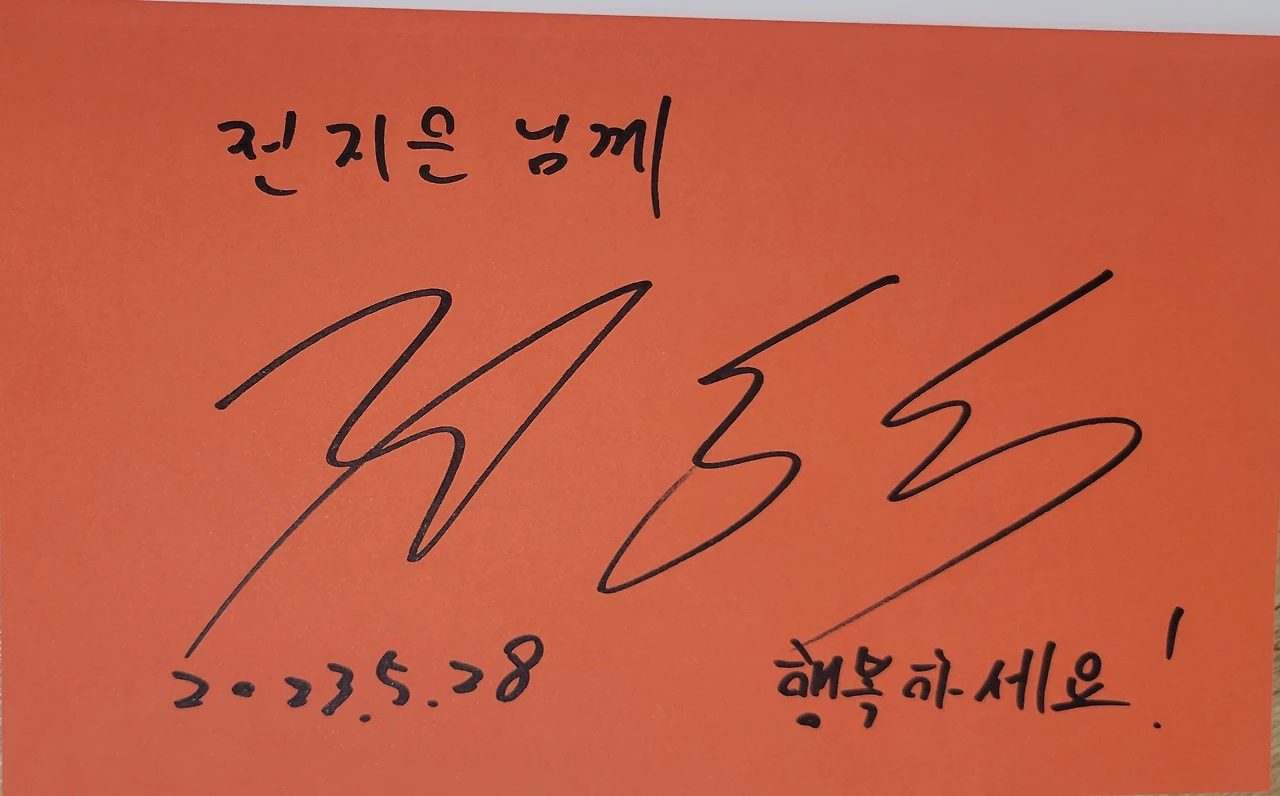 전지은 님께
2023.5.28
행복하세요!